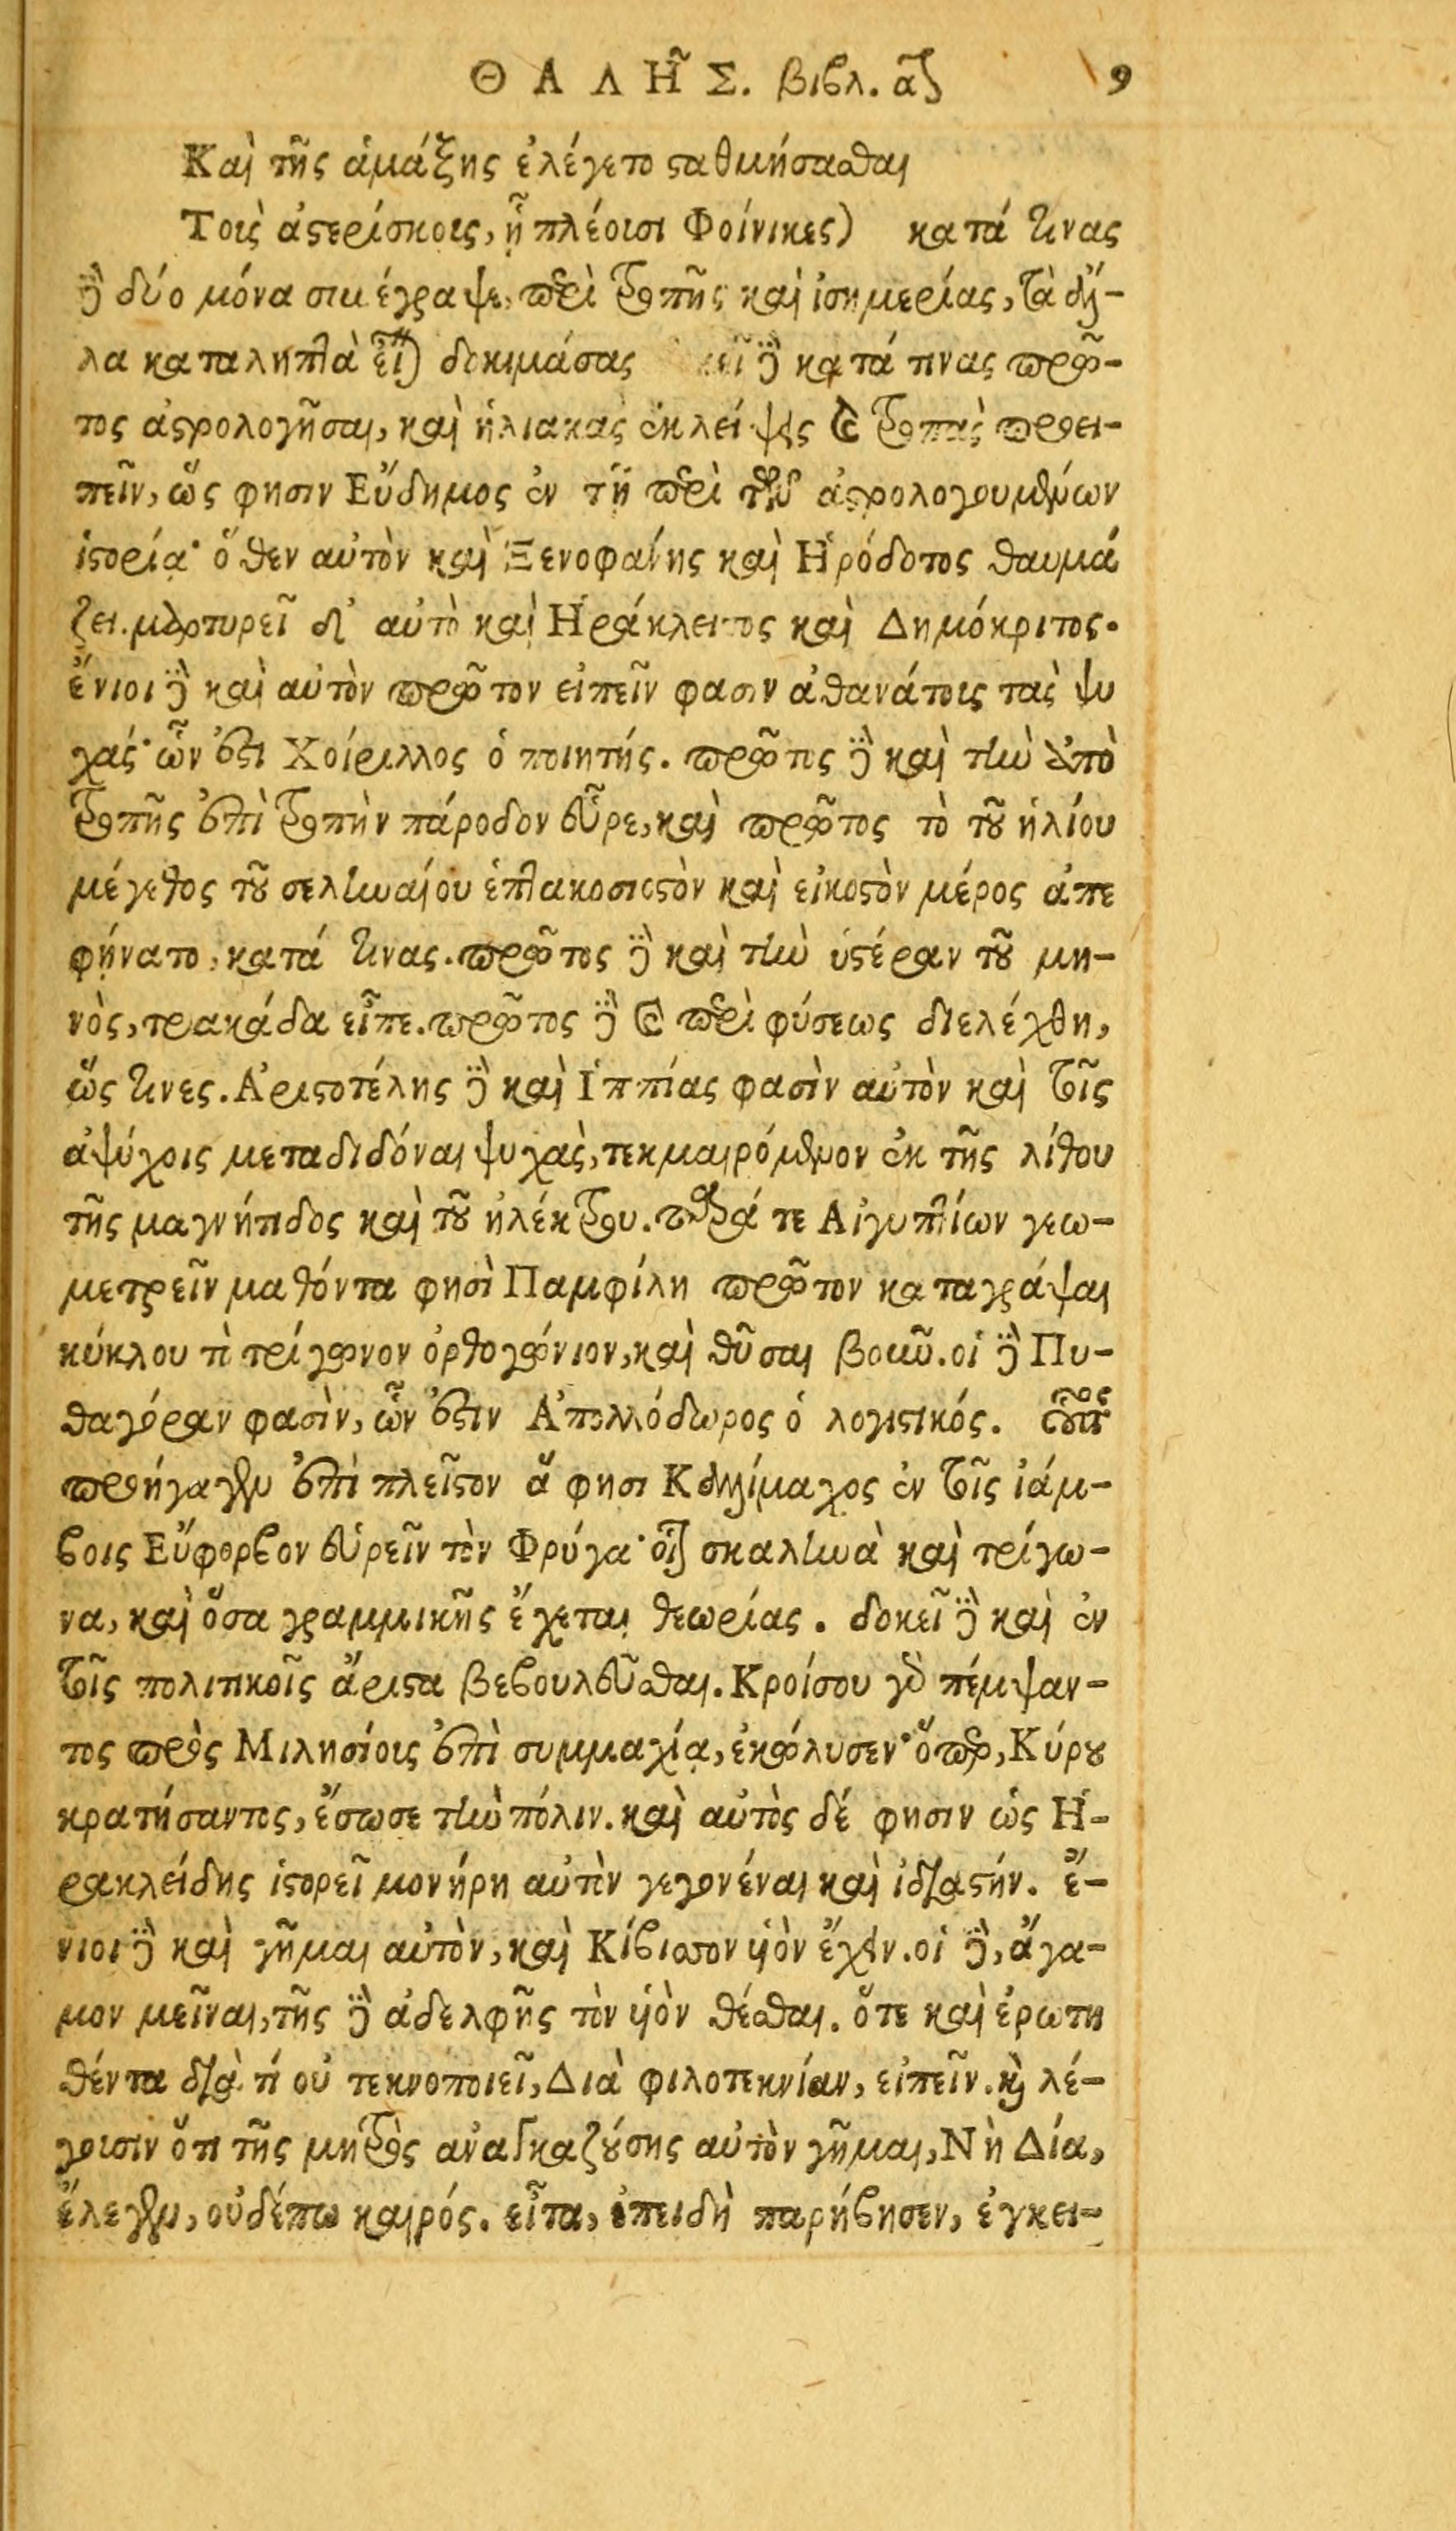 ΘΑΛΗ͂Σ. βιβλ. α 9
Καὶ τῆς ἁμάξης ἐλέγετο σταθμήσασθαι
Τοὺς ἀστερίσκους, ᾗ πλέουσι Φοίνικες) κατά τινας
δὲ δύο μόνα συνέγραψε, περὶ τροπῆς καὶ ἰσημερίας, τὰ ἄλ-
λα καταληπτὰ εἶναι δοκιμάσας δὲ κατά τινας πρῶ-
τος ἀστρολογῆσαι, καὶ ἡλιακὰς ἐκλείψεις καὶ τροπὰς προει-
πεῖν, ὥς φησιν Εὔδημος ἐν τῇ περὶ τῶν ἀστρολογουμένων
ἱστορίᾳ· ὅθεν αὐτὸν καὶ Ξενοφάνης καὶ Ἡρόδοτος θαυμά
ζει. μαρτυρεῖ δ' αὐτῷ καὶ Ἡράκλειτος καὶ Δημόκριτος.
ἔνιοι δὲ καὶ αὐτὸν πρῶτον εἰπεῖν φασιν ἀθανάτους τὰς ψυ
χάς· ὧν ἔστι Χοίριλλος ὁ ποιητής. πρῶτος δὲ καὶ τὴν ἀπὸ
τροπῆς ἐπὶ τροπὴν πάροδον εὗρε, καὶ πρῶτος τὸ τοῦ ἡλίου
μέγεθος τοῦ σεληναίου ἑπτακοσιοστὸν καὶ εἰκοστὸν μέρος ἀπε
φήνατο, κατά τινας. πρῶτος δὲ καὶ τὴν ὑστέραν τοῦ μη-
νὸς, τριακάδα εἶπε. πρῶτος δὲ καὶ περὶ φύσεως διελέχθη,
ὥς τινες. Ἀριστοτέλης δὲ καὶ Ἱππίας φασὶν αὐτὸν καὶ τοῖς
ἀψύχοις μεταδιδόναι ψυχὰς, τεκμαιρόμενον ἐκ τῆς λίθου
τῆς μαγνήτιδος καὶ τοῦ ἠλέκτρου. παρά τε Αἰγυπτίων γεω-
μετρεῖν μαθόντα φησὶ Παμφίλη πρῶτον καταγράψαι
κύκλου τὸ τρίγωνον ὀρθογώνιον, καὶ θῦσαι βοῦν. οἱ δὲ Πυ-
θαγόραν φασὶν, ὧν ἔστιν Ἀπολλόδωρος ὁ λογιστικός. οὗτος
προήγαγεν ἐπὶ πλεῖστον ἅ φησι Καλλίμαχος ἐν τοῖς ἰάμ-
βοις Εὔφορβον εὑρεῖν τὸν Φρύγα· οἷον σκαληνὰ καὶ τρίγω-
να, καὶ ὅσα γραμμικῆς ἔχεται θεωρίας. δοκεῖ δὲ καὶ ἐν
τοῖς πολιτικοῖς ἄριστα βεβουλεῦσθαι. Κροίσου γὰρ πέμψαν-
τος πρὸς Μιλησίους ἐπὶ συμμαχίᾳ, ἐκώλυσεν· ὅπερ, Κύρου
κρατήσαντος, ἔσωσε τὴν πόλιν. καὶ αὐτὸς δέ φησιν ὡς Ἡ-
ρακλείδης ἱστορεῖ μονήρη αὐτὸν γεγονέναι καὶ ἰδιαστήν. ἔ-
νιοι δὲ καὶ γῆμαι αὐτὸν, καὶ Κίβισσον υἱὸν ἔχειν. οἱ δὲ, ἄγα-
μον μεῖναι, τῆς δὲ ἀδελφῆς τὸν υἱὸν θέσθαι. ὅτε καὶ ἐρωτη
θέντα διὰ τί οὐ τεκνοποιεῖ, Διὰ φιλοτεκνίαν, εἰπεῖν. καὶ λέ-
γουσιν ὅτι τῆς μητρὸς ἀναγκαζούσης αὐτὸν γῆμαι, Νὴ Δία,
ἔλεγεν, οὐδέπω καιρός. εἶτα, ἐπειδὴ παρήβησεν, ἐγκει-